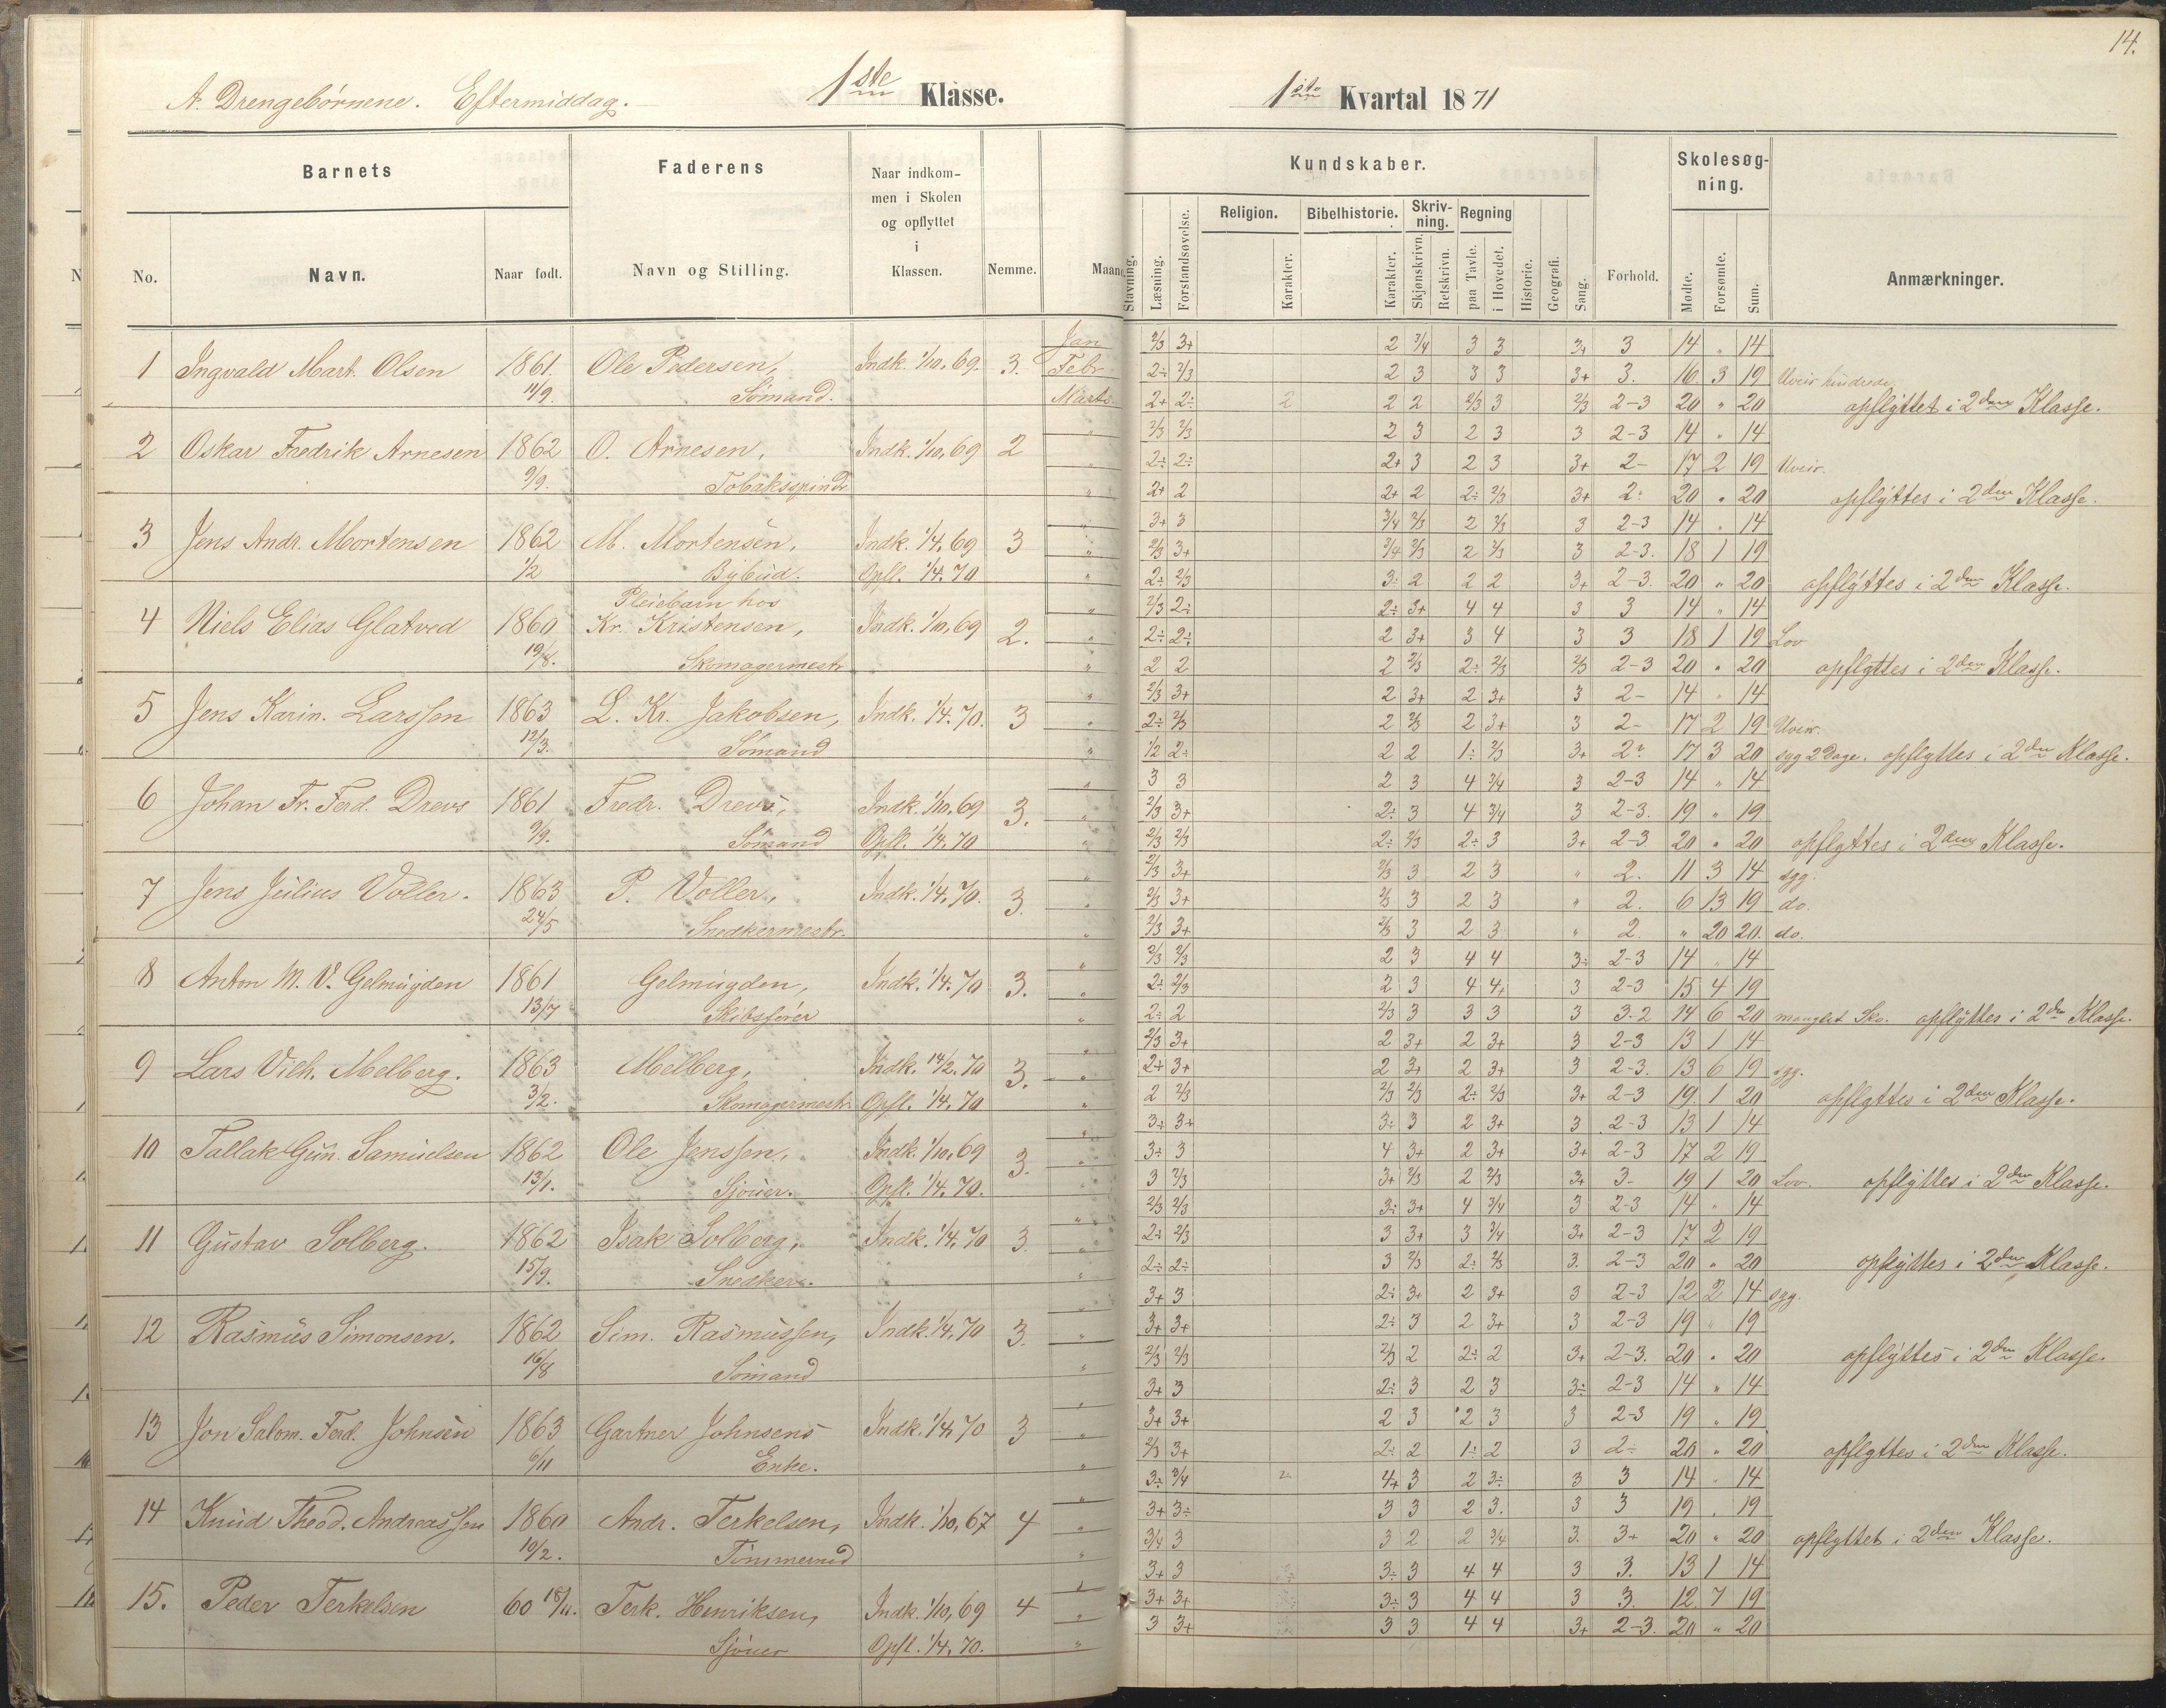 14.
A. Drengebørnene. Eftermiddag. 1ste Klasse. 1ste Kvartal 1871
Barnets Faderens Naar indkommen i Skolen og opflyttet i Klassen. Nemme. Kundskaber. Forhold. Skolesøgning. Anmærkninger.
No. Navn. Naar født. Navn og Stilling. Stavning. Læsning. Forstandsøvelse. Religion. Karakter. Bibelhistorie. Karakter. Skrivning. Skjønskrivn. Retskrivn. Regning paa Tavle. i Hovedet. Historie. Geografi. Sang. Mødte. Forsømte. Sum.
Jan 2/3 3+ 2 3/4 3 3 3+ 3 14 " 14
1 Ingvald Mart. Olsen 1861. Ole Pedersen, Indk. 1/10, 69. 3. Febr 2÷ 2/3 2 3 3 3 3+ 3. 16 3 19 Uveir hindrede.
11/9. Sømand. Marts 2+ 2÷ 2 2 2 2/3 3 2/3 2-3 20 " 20 opflyttet i 2den Klasse.
" 2/3 2/3 2 3 2 3 3 2-3 14 " 14
2 Oskar Fredrik Arnesen 1862 O. Arnesen, Indk. 1/10, 69 2 " 2÷ 2÷ 2+ 3 2 3 3+ 2- 17 2 19 Uveir.
9/9. Tobaksspindr " 2+ 2 2+ 2 2÷ 2/3 3+ 2÷ 20 " 20 opflyttes i 2den Klasse.
" 3+ 3 3/4 2/3 2 2/3 3 2-3 14 " 14
3 Jens Andr. Mortensen 1862 M. Mortensen, Indk. 1/4, 69 3 " 2/3 3+ 3/4 2/3 2 2/3 3 2-3. 18 1 19
1/2 Bybud. Opfl. 1/4. 70 " 2÷ 2/3 3÷ 2 2 2 3+ 2-3. 20 " 20 opflyttes i 2den Klasse.
Pleiebarn hos " 2/3 2÷ 2÷ 3+ 4 4 3 3 14 " 14
4 Niels Elias Glatved 1860 Kr. Kristensen, Indk. 1/10, 69 2. " 2÷ 2÷ 2 3+ 3 4 3 3 18 1 19 Lov
19/8. Skomagermestr " 2 2 2 2/3 2÷ 2/3 2/3 2-3 20 " 20 opflyttes i 2den Klasse.
" 2/3 3+ 2 3+ 2 3+ 3 2- 14 " 14
5 Jens Karin. Larssen 1863 L. Kr. Jakobsen, Indk. 1/4. 70. 3 " 2÷ 2/3 2 2/3 2 3+ 3 2- 17 2 19 Uveir.
12/3. Sømand " 1/2 2÷ 2 2 1÷ 2/3 3+ 2÷ 17 3 20 syg 2 Dage. opflyttes i 2den Klasse.
" 3 3 2 3 4 3/4 3 2-3 14 " 14
6 Johan Fr. Ferd. Drevs 1861 Fredr. Drevs, Indk. 1/10, 69 3. " 2/3 3+ 2÷ 3 4 3/4 3 2-3. 19 " 19
9/9. Sømand Opfl. 1/4. 70 " 2/3 2/3 2÷ 2/3 2÷ 3 3+ 2-3 20 " 20 opflyttes i 2den Klasse.
" 2/3 3+ 2/3 3 2 3 " 2. 11 3 14 syg.
7 Jens Julius Voller. 1863 P. Voller, Indk. 1/4. 70. 3. " 2/3 3+ 2/3 3 2 3 " 2. 6 13 19 do.
24/5 Snedkermestr. " 2/3 3+ 2/3 3 2 3 " 2. " 20 20. do.
" 2/3 2/3 2 3 4 4 3÷ 2-3 14 " 14
8 Anton M. V. Gelmuyden 1861 Gelmuyden, Indk. 1/4. 70 3. " 2÷ 2/3 2 3 4 4+ 3 2-3 15 4 19
13/7 Skibsfører " 2÷ 2 2/3 3 3 3 3 3-2 14 6 20 manglet Sko. opflyttes i 2den Klasse.
" 2/3 3+ 2 3+ 2 3+ 3 2-3 13 1 14
9 Lars Vilh. Melberg. 1863 Melberg, Indk. 14/2. 70 3. " 2÷ 3+ 2 3+ 2 3+ 3 2-3. 13 6 19 syg.
3/2. Skomagermestr. Opfl. 1/4. 70 " 2 2/3 2/3 2/3 2÷ 2/3 3+ 2-3 19. 1 20 opflyttes i 2den Klasse.
" 3÷ 3+ 3÷ 3 2 3+ 3 2-3 13 1 14
10 Tallak Gun. Samuelsen 1862 Ole Jenssen, Indk. 1/10, 69 3. " 3÷ 3 4 3+ 2 3+ 3+ 2-3 17 2 19
13/1. Sjouer. Opfl. 1/4. 70. " 3 2/3 3+ 2/3 2 2/3 3+ 3- 19 1 20 Lov. opflyttes i 2den Klasse.
" 2/3 2/3 3÷ 3+ 4 3/4 3 2-3 14 " 14
11 Gustav Solberg. 1862 Isak Solberg, Indk. 1/4, 70 3. " 2÷ 2/3 3 3+ 3 3/4 3+ 2-3 17 2 19
15/9. Snedker. " 2÷ 2÷ 3 2/3 2÷ 2/3 3. 2-3 20 " 20 opflyttes i 2den Klasse.
" 3+ 3 2÷ 3+ 2 3+ 3 2-3 12 2 14 syg.
12 Rasmus Simonsen. 1862 Sim. Rasmussen, Indk. 1/4, 70 3. " 3+ 3+ 2÷ 3 2 3+ 3 2-3 19 " 19
16/8 Sømand " 2/3 2/3 2/3 2 2÷ 2 3+ 2-3. 20 " 20 opflyttes i 2den Klasse.
" 3+ 3 2÷ 3 2 3 3÷ 2-3 14 " 14
13 Jon Salom. Ferd. Johnsen 1863 Gartner Johnsens Indk. 1/4, 70 3 " 3+ 3+ 2 3 2 3 3 2-3 19 " 19
6/11 Enke. " 2/3 3+ 2÷ 2 1÷ 2 3 2÷ 20 " 20 opflyttes i 2den Klasse.
" 3÷ 3/4 2 4+ 3 2 3÷ 3 3 14 " 14
14 Knud Theod. Andreassen 1860 Andr. Terkelsen, Indk. 1/10, 67 4 " 3+ 3÷ 3 3 2 3. 3 3 19 " 19
10/2. Tømmermd " 3/4 3 3 2 2 3/4 3. 3+ 20 " 20 opflyttet i 2den Klasse.
" 3+ 3 3÷ 3 4 4 3 3. 13 1 14
15. Peder Terkelsen 60 18/11. Terk. Henriksen, Indk. 1/10, 69 4 " 3+ 3+ 3÷ 3 4 4 3 3. 12. 7 19
Sjouer Opfl. 1/4, 70. " 3 3+ 3 3 4 4 3+ 2-3. 20 " 20